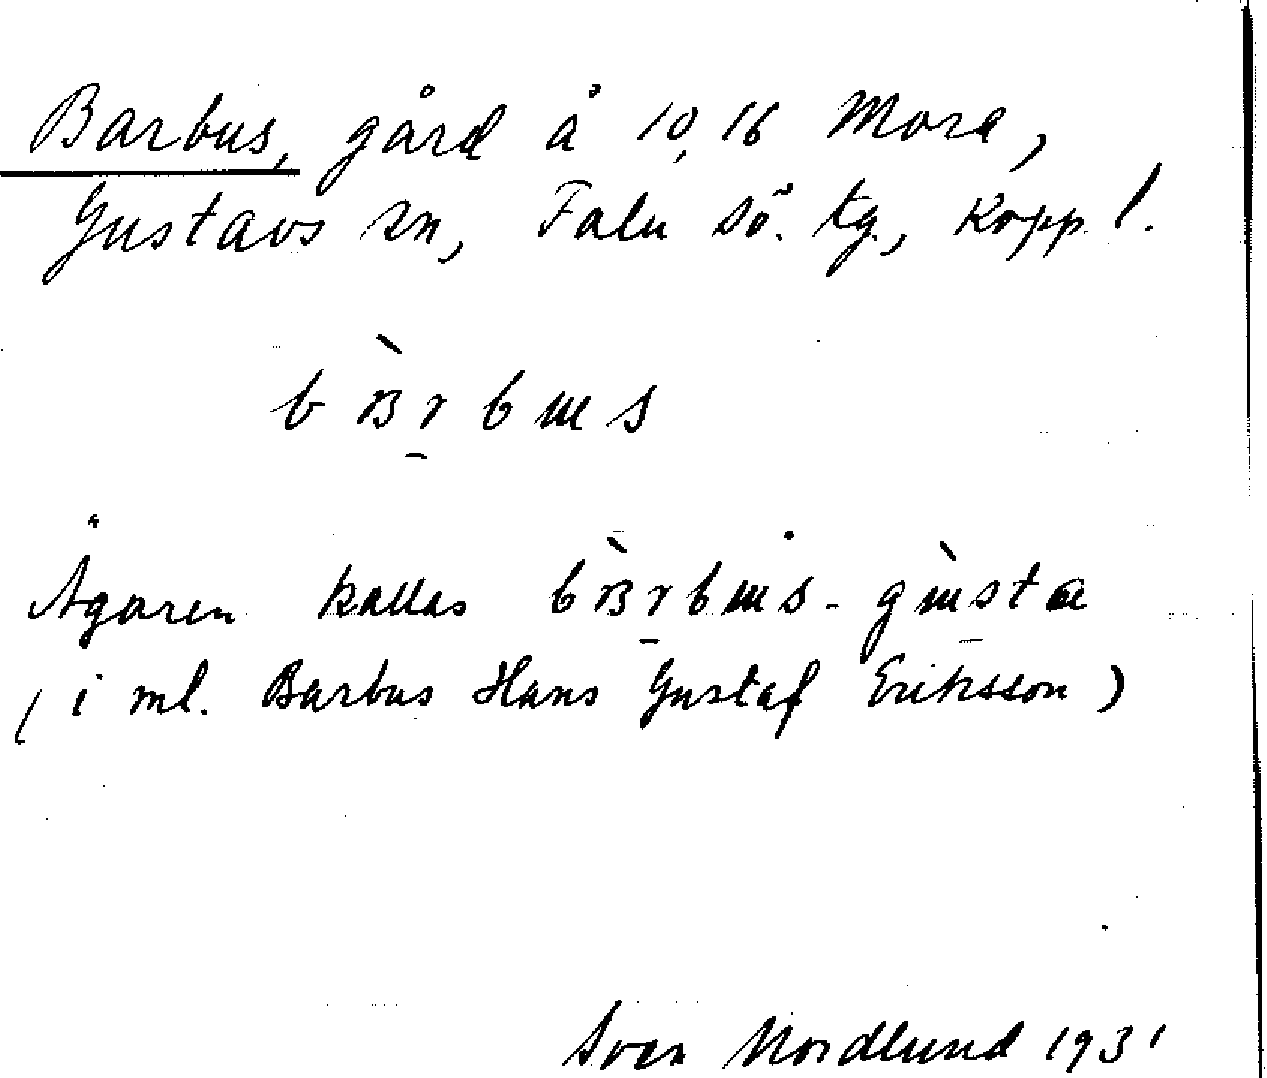 Barbus, gård å 10,16 Mora,
Gustavs sn, Falu sö. tg., Kopp l.
Ägaren kallas
(i ml. Barbus Hans Gustaf Eriksson)
Sven Nordlund 1931